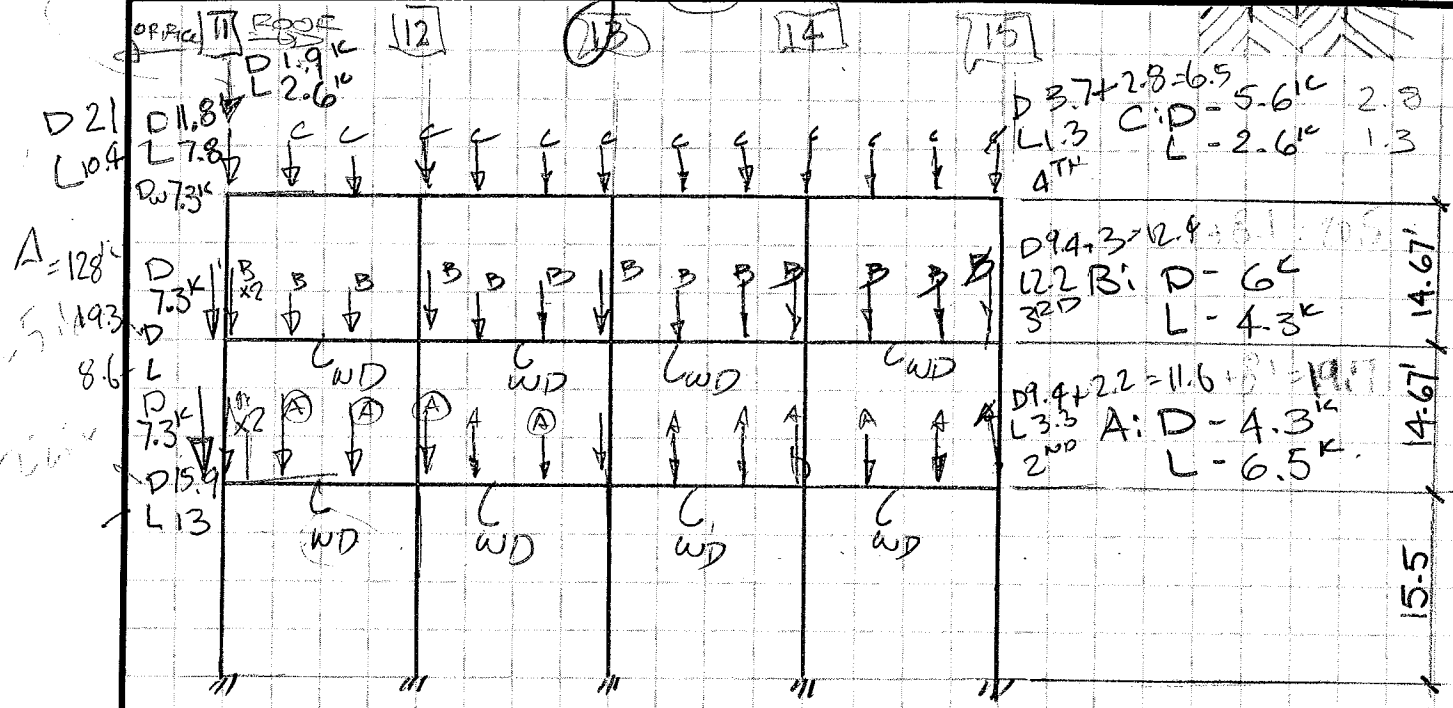 OFFICE 11 ROOF 12 13 14 15
D 1.9K
L 2.6K
D 21 D 11.8
L 10.4 L 7.8
DW 7.3K
C C C C C C C C C C C C
D 3.7+2.8=6.5
L 1.3
4TH
C: D - 5.6K 2.8
L - 2.6K 1.3
A = 128
D
7.3K
19.3 D
8.6 L
B x2 B B B B B B B B B B B B
D 9.4+3=12.4
L 2.2
3RD
B: D - 6K
L - 4.3K
14.67'
WD WD WD WD
D
7.3K
D 15.9
L 13
x2 A A A A A A A A A A A
D 9.4+2.2=11.6
L 3.3
2ND
A: D - 4.3K
L - 6.5K.
14.67'
WD WD WD WD
15.5